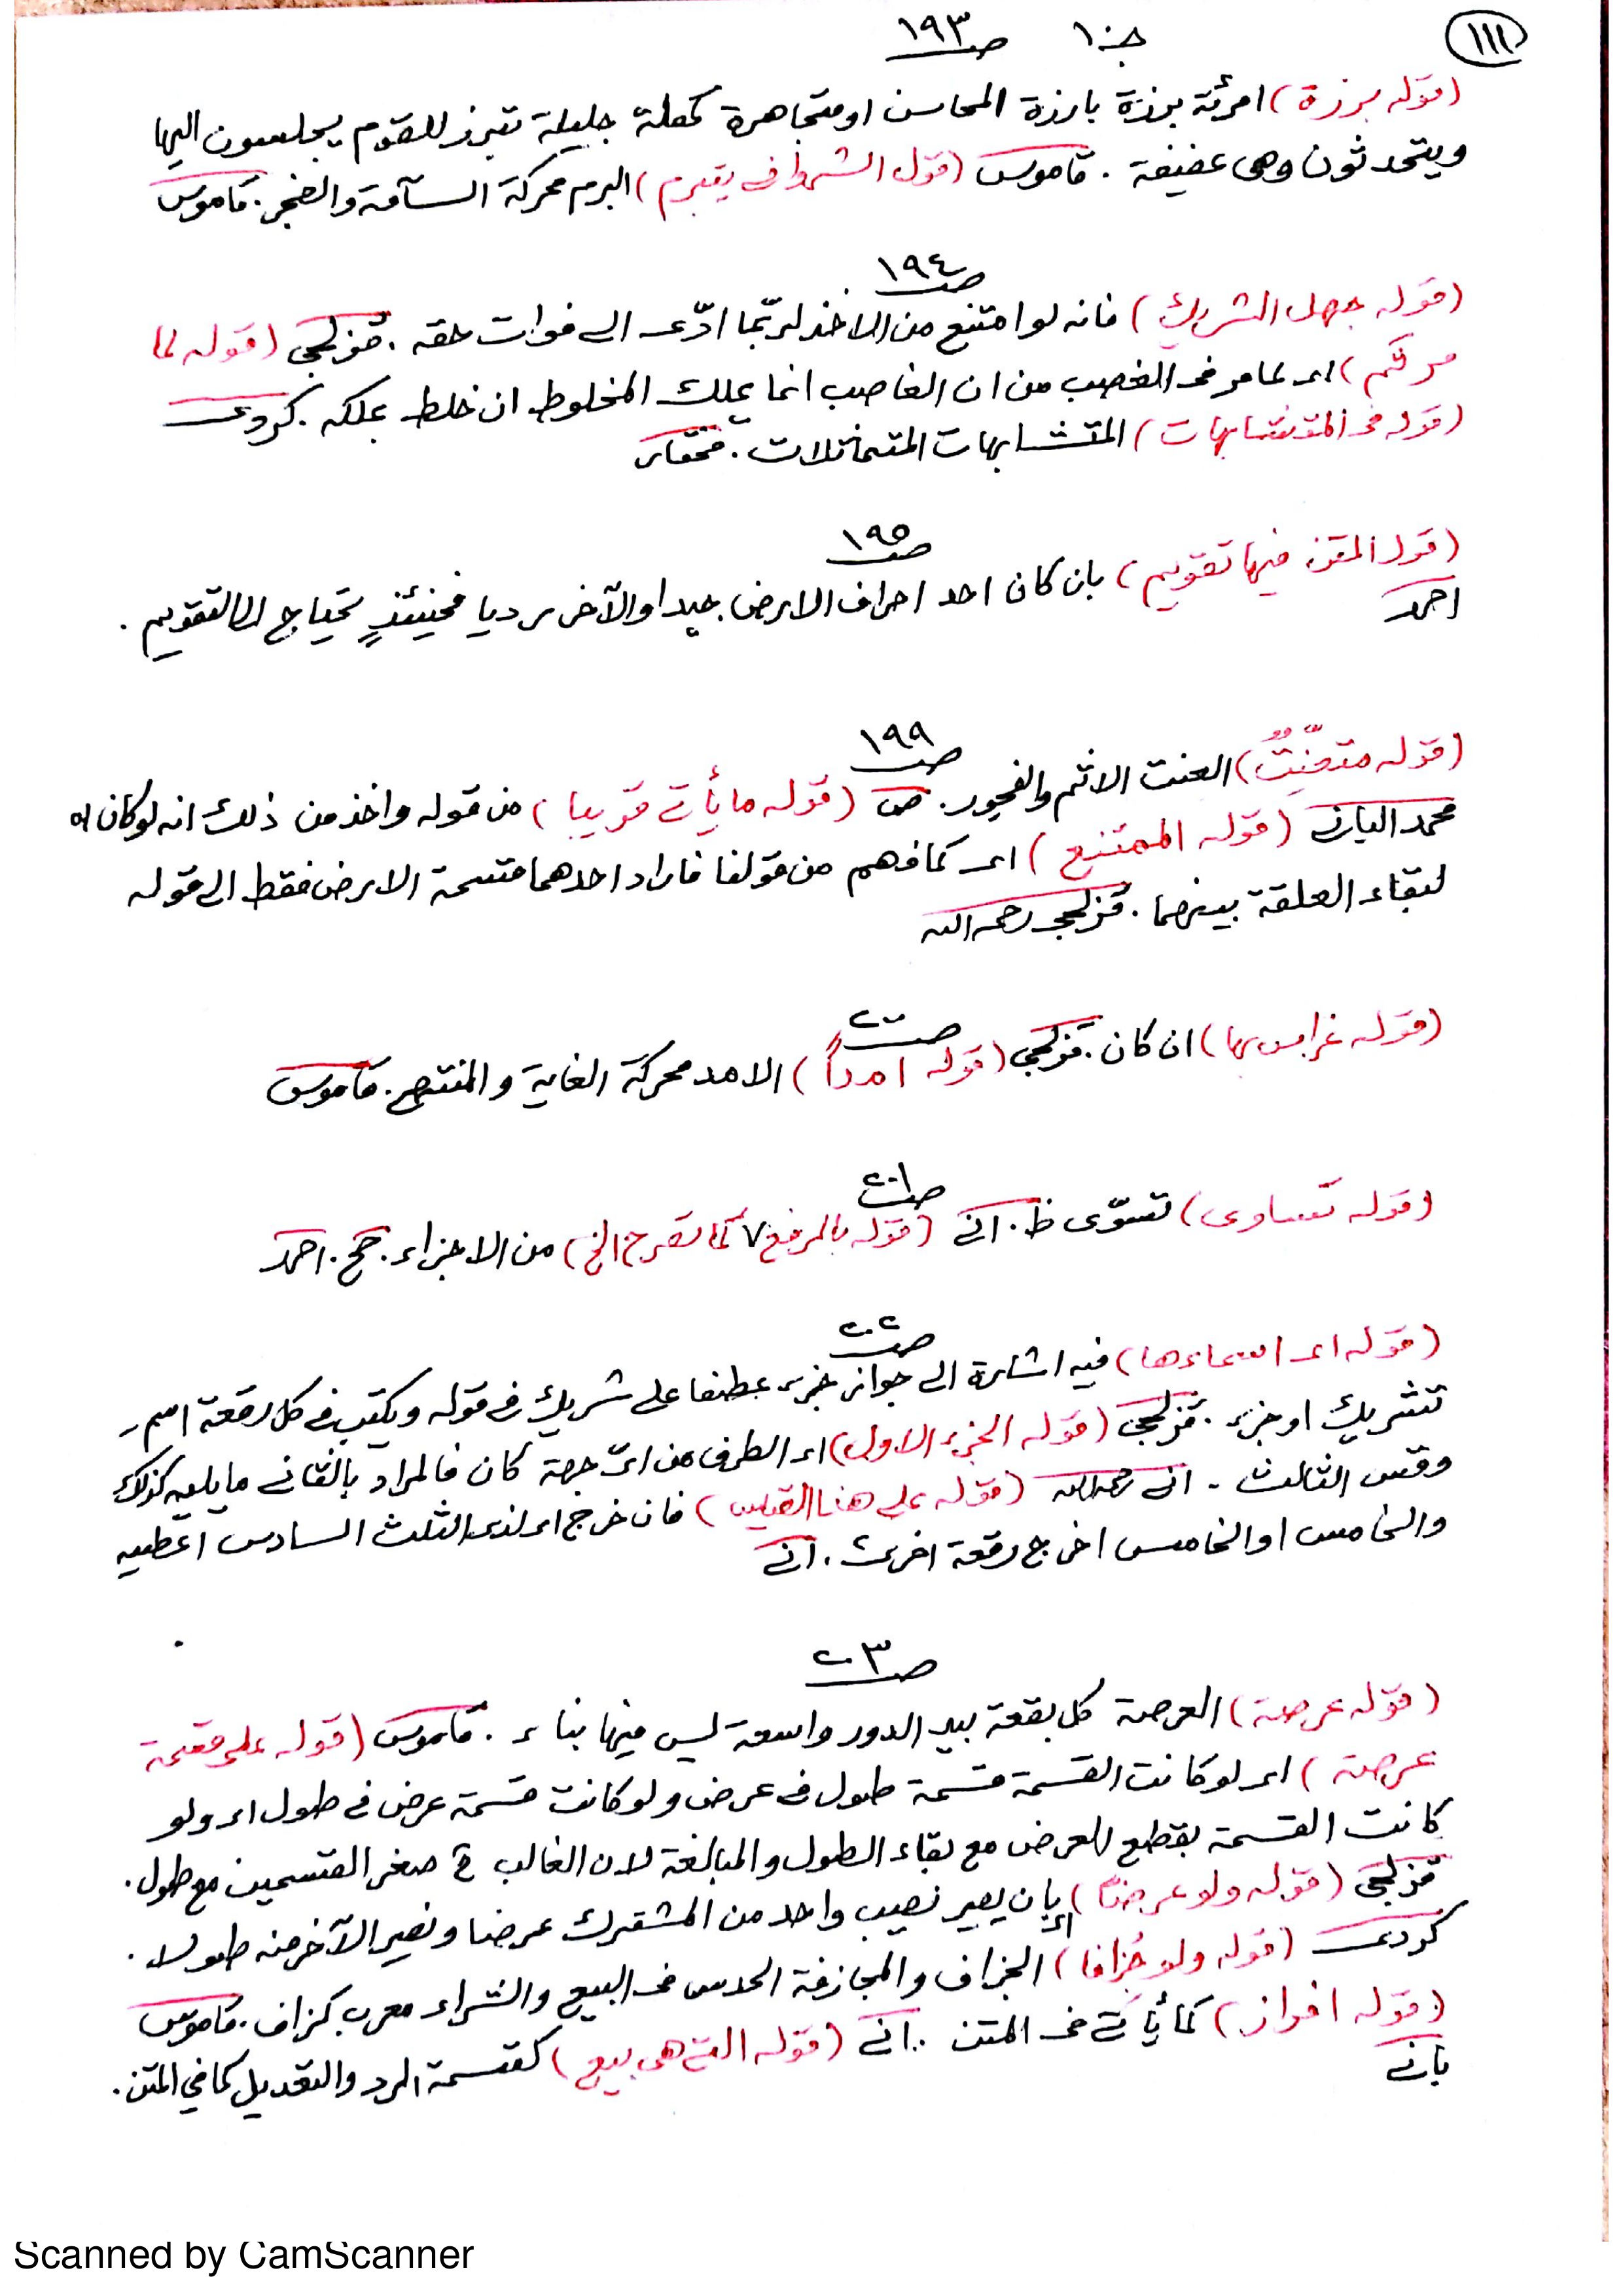 ١١١
جـ١٠ صـ١٩٣
(قوله برزة) امرئة برزة بارزة المحاسن او متجاهرة كهلة جليلة تبرز للقوم يجلسون اليها
ويتحدثون وهى عفيفة . قاموس (قول الشروانى يتبرم) البرم محركة السآمة والضجر . قاموس
صـ١٩٤
(قوله جهل الشريك) فانه لو امتنع من الاخذ لربّما ادّى الى فوات حقه . قزلجى (قوله لما
مر ثَم) اى لما مر فى الغصب من ان الغاصب انما يملك المخلوط ان خلط بملكه . كردى
(قوله فى المتشابهات) المتشابهات المتماثلات . مختار
صـ١٩٥
(قول المتن فيها تقويم) بان كان احد اطراف الارض جيدا والآخر رديا فحينئذٍ يحتاج الى التقويم .
احمد
صـ١٩٩
(قوله متعنِّتٌ) العنت الاثم والفجور . ص (قوله ما يأتى قريبا) من قوله واخذ من ذلك انه لو كان اه
محمد البارزى (قوله الممتنع) اى كما فهم من قولنا فاراد احدهما قسمة الارض فقط الى قوله
لبقاء العلقة بينهما . قزلجى رحمه الله
صـ٢٠٠
(قوله غراس بها) ان كان . قزلجى (قوله امداً) الامد محركة الغاية والمنتهى . قاموس
صـ٢٠١
(قوله تساوى) تسوّى ظ . انى (قوله بالرفع ٧ كما تصرح الخ) من الاجزاء . حج . احمد
صـ٢٠٢
(قوله اى اسماءها) فيه اشارة الى جواز جزء عطفا على شريك فى قوله ويكتب فى كل رقعة اسم
شريك او جزء . قزلجى (قوله الجزء الاول) اى الطرف من اىّ جهة كان فالمراد بالثانى ما يليه كذلك
وقس الثالث . انى رحمه الله (قوله على هذا القياس) فان خرج اى لذى الثلث السادس اعطيه
والخامس او الخامس اخرج رقعة اخرى . انى
صـ٢٠٣
(قوله عرصة) العرصة كل بقعة بين الدور واسعة ليس فيها بناء . قاموس (قوله على قسمة
عرصة) اى لو كانت القسمة قسمة طول فى عرض ولو كانت قسمة عرض فى طول اى ولو
كانت القسمة بقطع للعرض مع بقاء الطول والمبالغة لان الغالب فى صغر القسمين مع طول .
قزلجى (قوله ولو عرضًا) اى بان يصير نصيب واحد من المشترك عرضا ونصير الآخر منه طولا .
كردى (قوله ولو جُزافا) الجزاف والمجازفة الحدس فى البيع والشراء معرب كزاف . قاموس
(قوله افراز) كما يأتى فى المتن . انى (قوله التى هى بيع) كقسمة الرد والتعديل كما في المتن .
بانى
Scanned by CamScanner